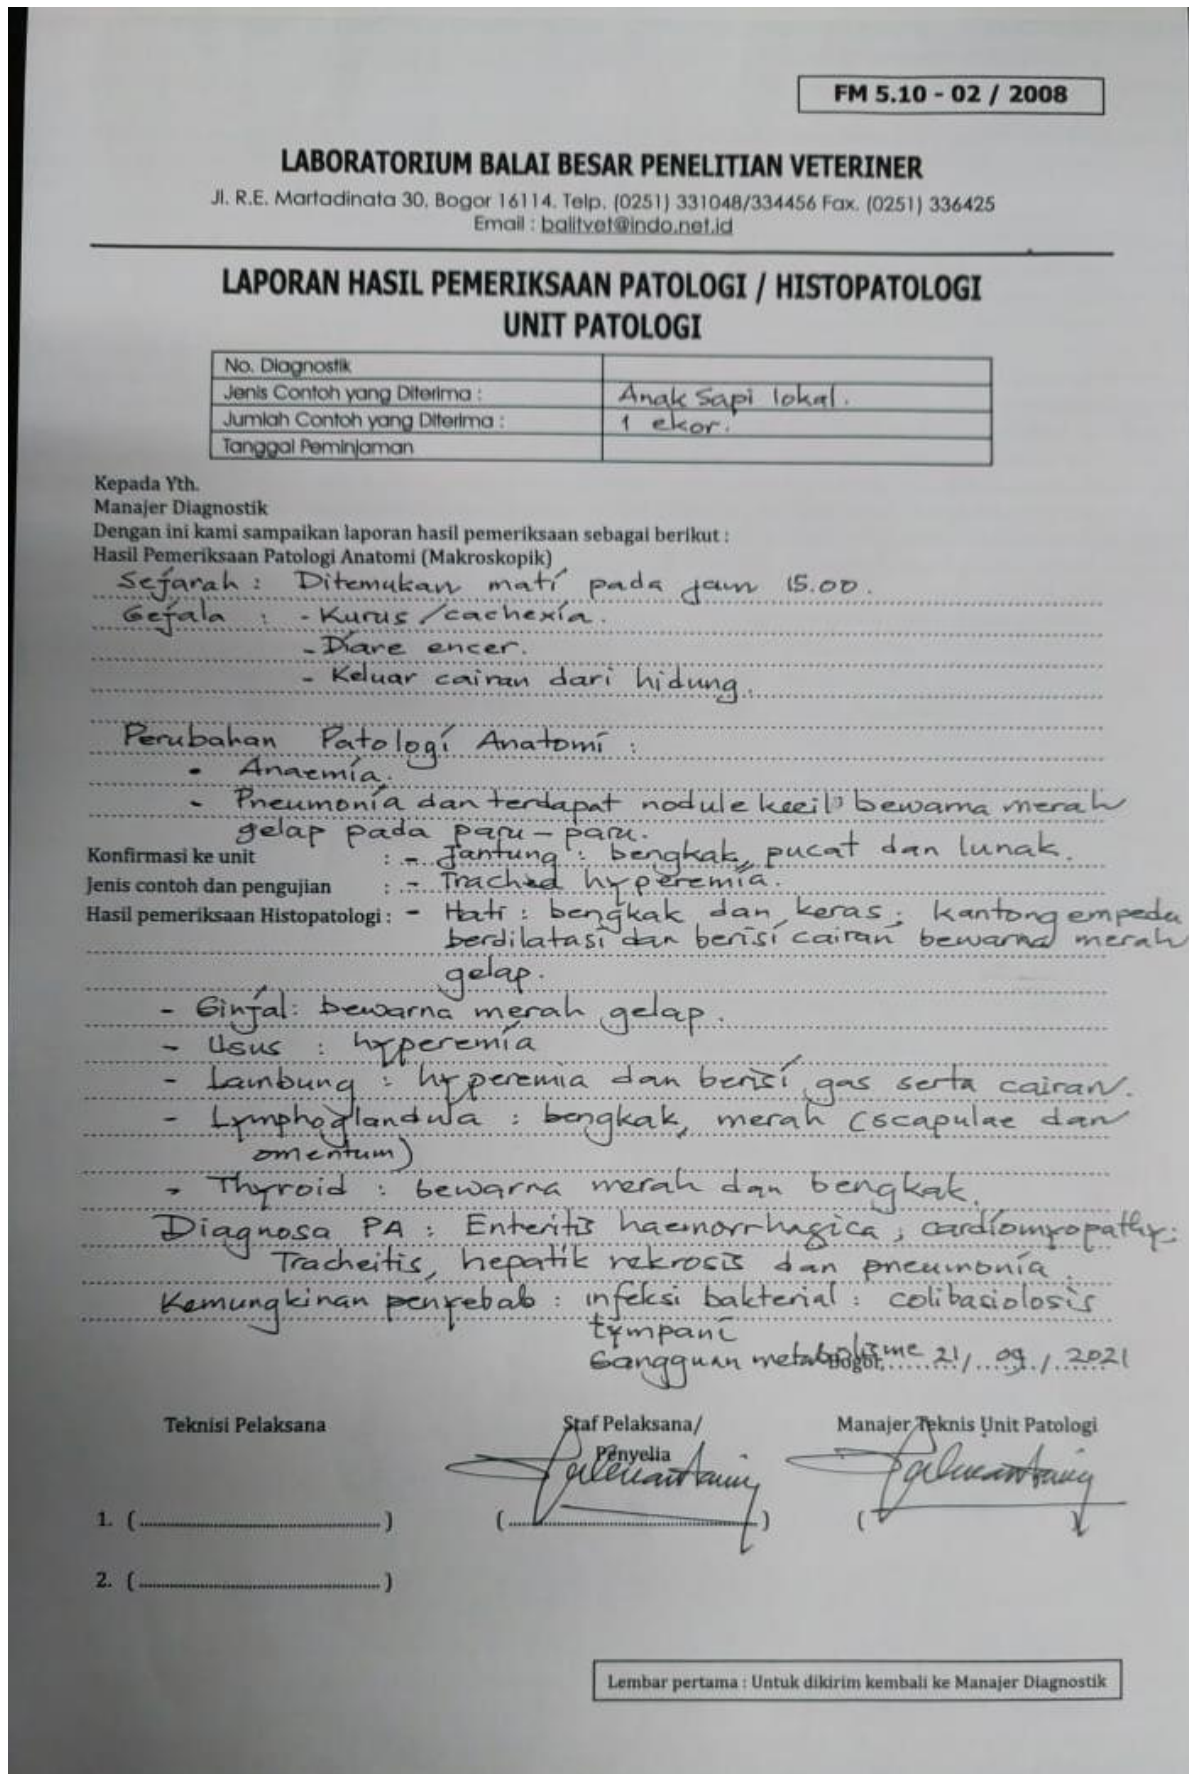 FM 5.10 - 02 / 2008
LABORATORIUM BALAI BESAR PENELITIAN VETERINER
Jl. R.E. Martadinata 30, Bogor 16114. Telp. (0251) 331048/334456 Fax. (0251) 336425
Email : balitvet@indo.net.id
LAPORAN HASIL PEMERIKSAAN PATOLOGI / HISTOPATOLOGI
UNIT PATOLOGI
No. Diagnostik
Jenis Contoh yang Diterima : Anak Sapi lokal.
Jumlah Contoh yang Diterima : 1 ekor.
Tanggal Peminjaman
Kepada Yth.
Manajer Diagnostik
Dengan ini kami sampaikan laporan hasil pemeriksaan sebagai berikut :
Hasil Pemeriksaan Patologi Anatomi (Makroskopik)
Sejarah : Ditemukan mati pada jam 15.00.
Gejala : - Kurus/cachexia.
- Diare encer.
- Keluar cairan dari hidung.
Perubahan Patologi Anatomi :
- Anaemia.
- Pneumonia dan terdapat nodule kecil² bewarna merah
gelap pada paru-paru.
Konfirmasi ke unit : - Jantung : bengkak, pucat dan lunak.
Jenis contoh dan pengujian : - Trachea hyperemia.
Hasil pemeriksaan Histopatologi : - Hati : bengkak dan keras; kantong empedu
berdilatasi dan berisi cairan bewarna merah
gelap.
- Ginjal: bewarna merah gelap.
- Usus : hyperemia
- Lambung : hyperemia dan berisi gas serta cairan.
- Lymphoglandula : bengkak, merah (scapulae dan
omentum)
- Thyroid : bewarna merah dan bengkak.
Diagnosa PA : Enteritis haemorrhagica ; cardiomyopathy;
Tracheitis, hepatik nekrosis dan pneumonia.
Kemungkinan penyebab : infeksi bakterial : colibasiolosis
tympani
Gangguan metabolisme
Bogor, 21/ 09 / 2021
Teknisi Pelaksana
Staf Pelaksana/
Penyelia
Manajer Teknis Unit Patologi
1. (..........)
(..........)
(
)
2. (..........)
Lembar pertama : Untuk dikirim kembali ke Manajer Diagnostik